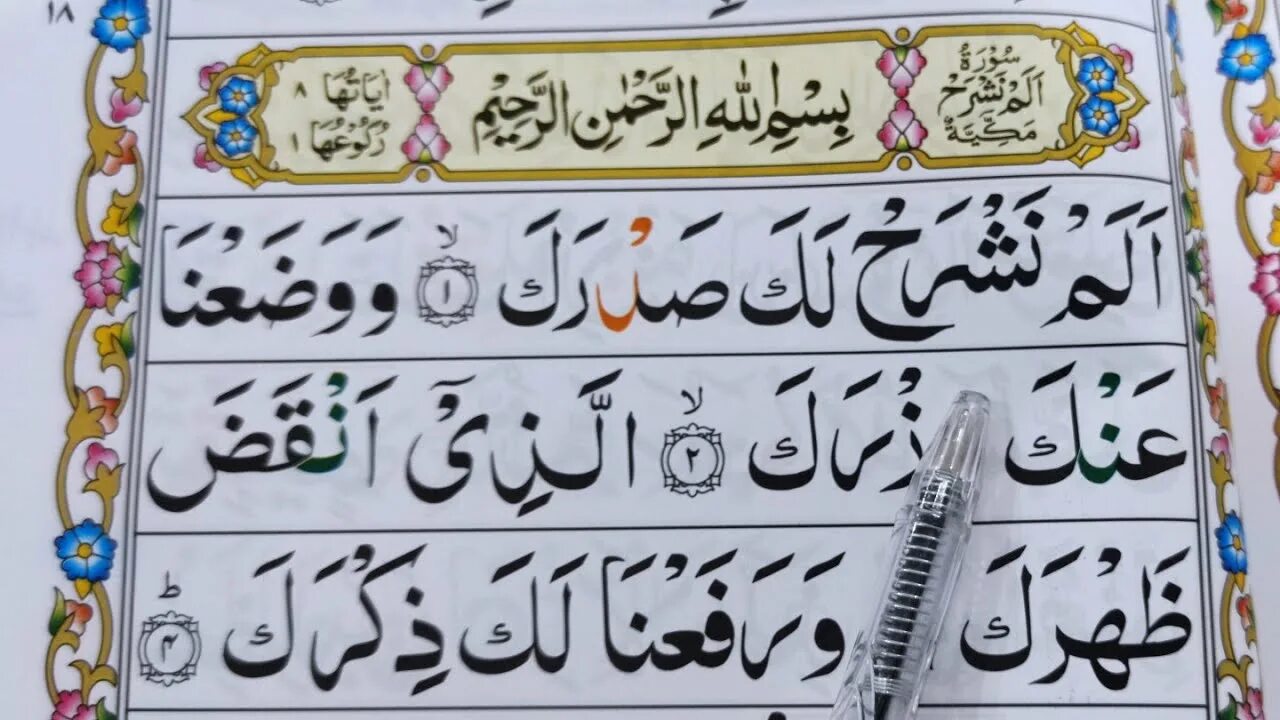 ١٨
سُوْرَةُ
اَلَمْ نَشْرَحْ
مَكِّيَّةٌ
بِسْمِ اللّٰهِ الرَّحْمٰنِ الرَّحِيْمِ
اٰيَاتُهَا ٨
رُكُوْعُهَا ١
اَلَمْ نَشْرَحْ لَكَ صَدْرَكَ ۙ ١ وَوَضَعْنَا
عَنْكَ زْرَكَ ۙ ٢ الَّذِيْٓ اَنْقَضَ
ظَهْرَكَ وَرَفَعْنَا لَكَ ذِكْرَكَ ؕ ۴